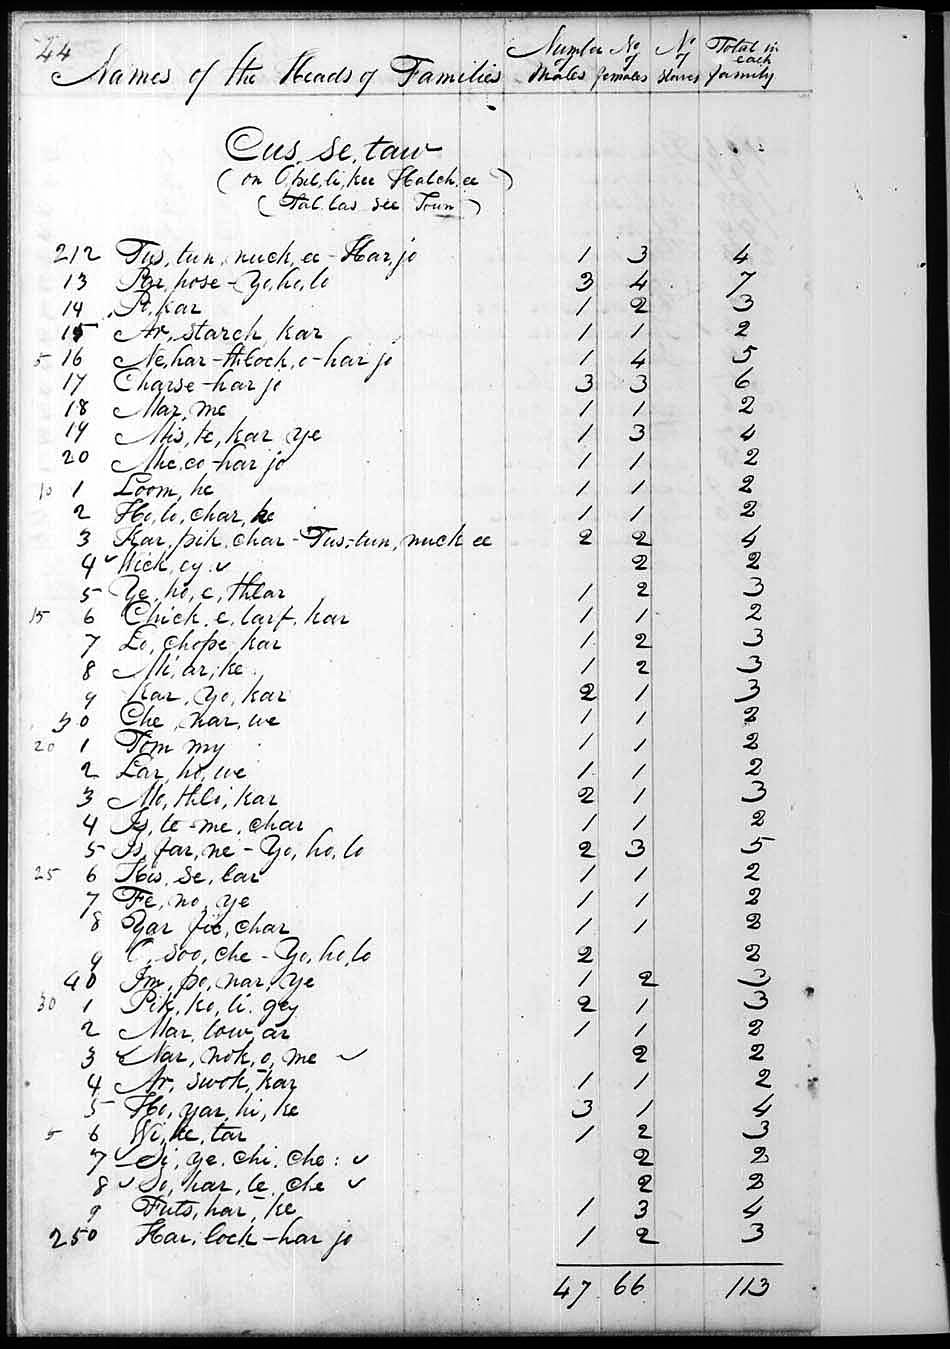 44
Names of the Heads of Families Number of Males No of females No of slaves Total in each family
Cus, se, taw
(on O,pil,li,kee Hatch,ee)
(Tal.las see Town)
212 Tus, tun, nuck, ee - Har, jo 1 3 4
13 Par, hose - Yo, ho, lo 3 4 7
14 Po, kar 1 2 3
15 Ar, starch, kar 1 1 2
5 16 Ne, har - thlock, o - har jo 1 4 5
17 Charse - har jo 3 3 6
18 Mar, me 1 1 2
19 Mis, te, kar, ye 1 3 4
20 Mic, co - har jo 1 1 2
10 1 Loom, he 1 1 2
2 Ho, lo, char, ke 1 1 2
3 Kar, pik, char - Tus, tun, nuck ee 2 2 4
4 Wick, ey 2 2
5 Ye, ho, e, thlar 1 2 3
15 6 Chick, e, larf, kar 1 1 2
7 Lo, chope kar 1 2 3
8 Mi, ar, ke 1 2 3
9 Kar, yo, kar 2 1 3
30 Che, nar, we 1 1 2
20 1 Tom my 1 1 2
2 Lar, ho, we 1 1 2
3 Mo, thli, kar 2 1 3
4 Is, te - me, char 1 1 2
5 Is, far, ne - Yo, ho, lo 2 3 5
25 6 His, se, lar 1 1 2
7 Fe, no, ye 1 1 2
8 Yar fic, char 1 1 2
9 O, soo, che - Yo, ho, lo 2 2
40 Im, po, nar, ye 1 2 3
30 1 Pik, ko, li, gey 2 1 3
2 Mar, low, ar 1 1 2
3 Nar, nok, o, me 2 2
4 Ar, swok, kar 1 1 2
5 Ho, yar, hi, ke 3 1 4
5 6 Wi, ke, tar 1 2 3
7 Si, ye, chi, che 2 2
8 So, har, le, che 2 2
9 Futs, har, ke 1 3 4
250 Har, lock - har jo 1 2 3
47 66 113